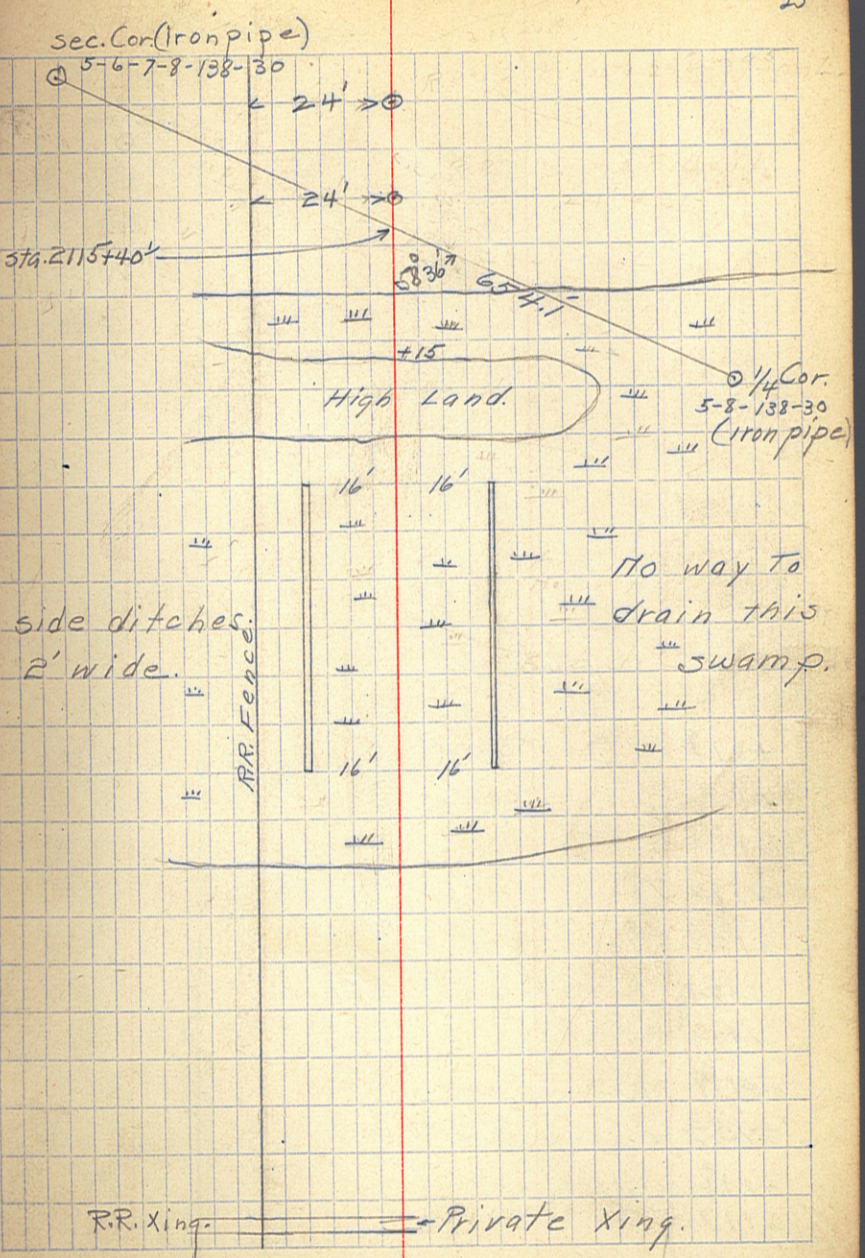 sec. Cor. (Iron pipe)
5-6-7-8-138-30
24'
24'
sta. 2115+40'
58° 36'
654.1'
+15
High Land.
1/4 Cor.
5-8-138-30
(iron pipe)
16' 16'
No way To
drain this
swamp.
side ditches
2' wide.
R.R. Fence.
16' 16'
R.R. Xing.
Private Xing.